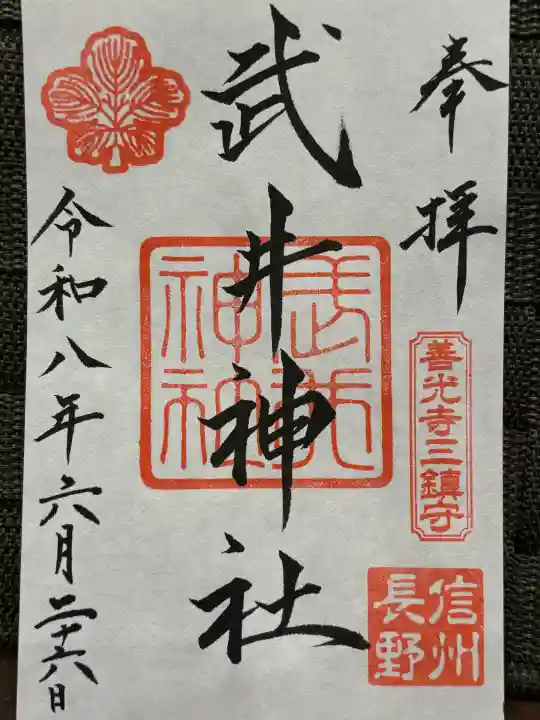 奉拝
善光寺三鎮守
信州
長野
武井神社
武井
神社
令和八年六月二十六日